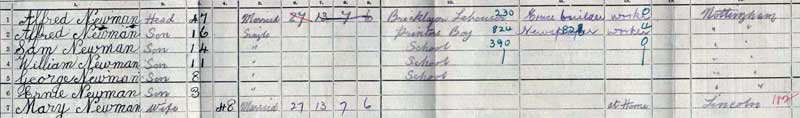 1 Alfred Newman Head 47 Married 27 13 7 6 Bricklayer Labourer 230 builder worker 0 Nottingham
2 Alfred Newman Son 16 Single Printers Boy 824 Newspaper 824 worker 4 " "
3 Sam Newman Son 14 " School 390 0 " "
4 William Newman Son 11 " School " "
5 George Newman Son 8 " School " "
6 Ernie Newman Son 3 " "
7 Mary Newman Wife 48 Married 27 13 7 6 at Home Lincoln